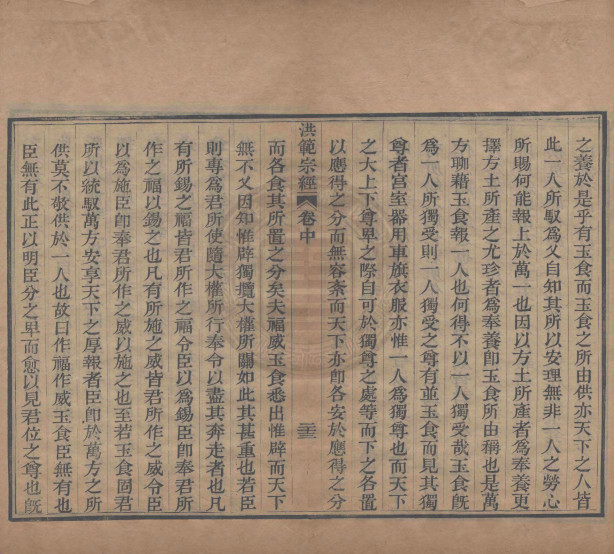 之養於是乎有玉食而玉食之所由供亦天下之人皆
此一人所馭為又自知其所以安理無非一人之勞心
所賜何能報上於萬一也因以方土所產者為奉養更
擇方土所產之尤珍者為奉養即玉食所由稱也是萬
方聊藉玉食報一人也何得不以一人獨受哉玉食旣
為一人所獨受則一人獨受之尊有並玉食而見其獨
尊者宮室器用車旗衣服亦惟一人為獨尊也而天下
之大上下尊卑之際自可於獨尊之處等而下之各置
以應得之分而無容紊而天下亦卽各安於應得之分
洪範宗經 卷中 二十三
而各食其所置之分矣夫福威玉食悉出惟辟而天下
無不又因知惟辟獨攬大權所關如此其甚重也若臣
則專為君所使隨大權所行奉令以盡其奔走者也凡
有所錫之福皆君所作之福令臣以為錫臣卽奉君所
作之福以錫之也凡有所施之威皆君所作之威令臣
以為施臣卽奉君所作之威以施之也至若玉食固君
所以統馭萬方安享天下之厚報者臣卽於萬方之所
供莫不敬供於一人也故曰作福作威玉食臣無有也
臣無有此正以明臣分之卑而愈以見君位之尊也旣